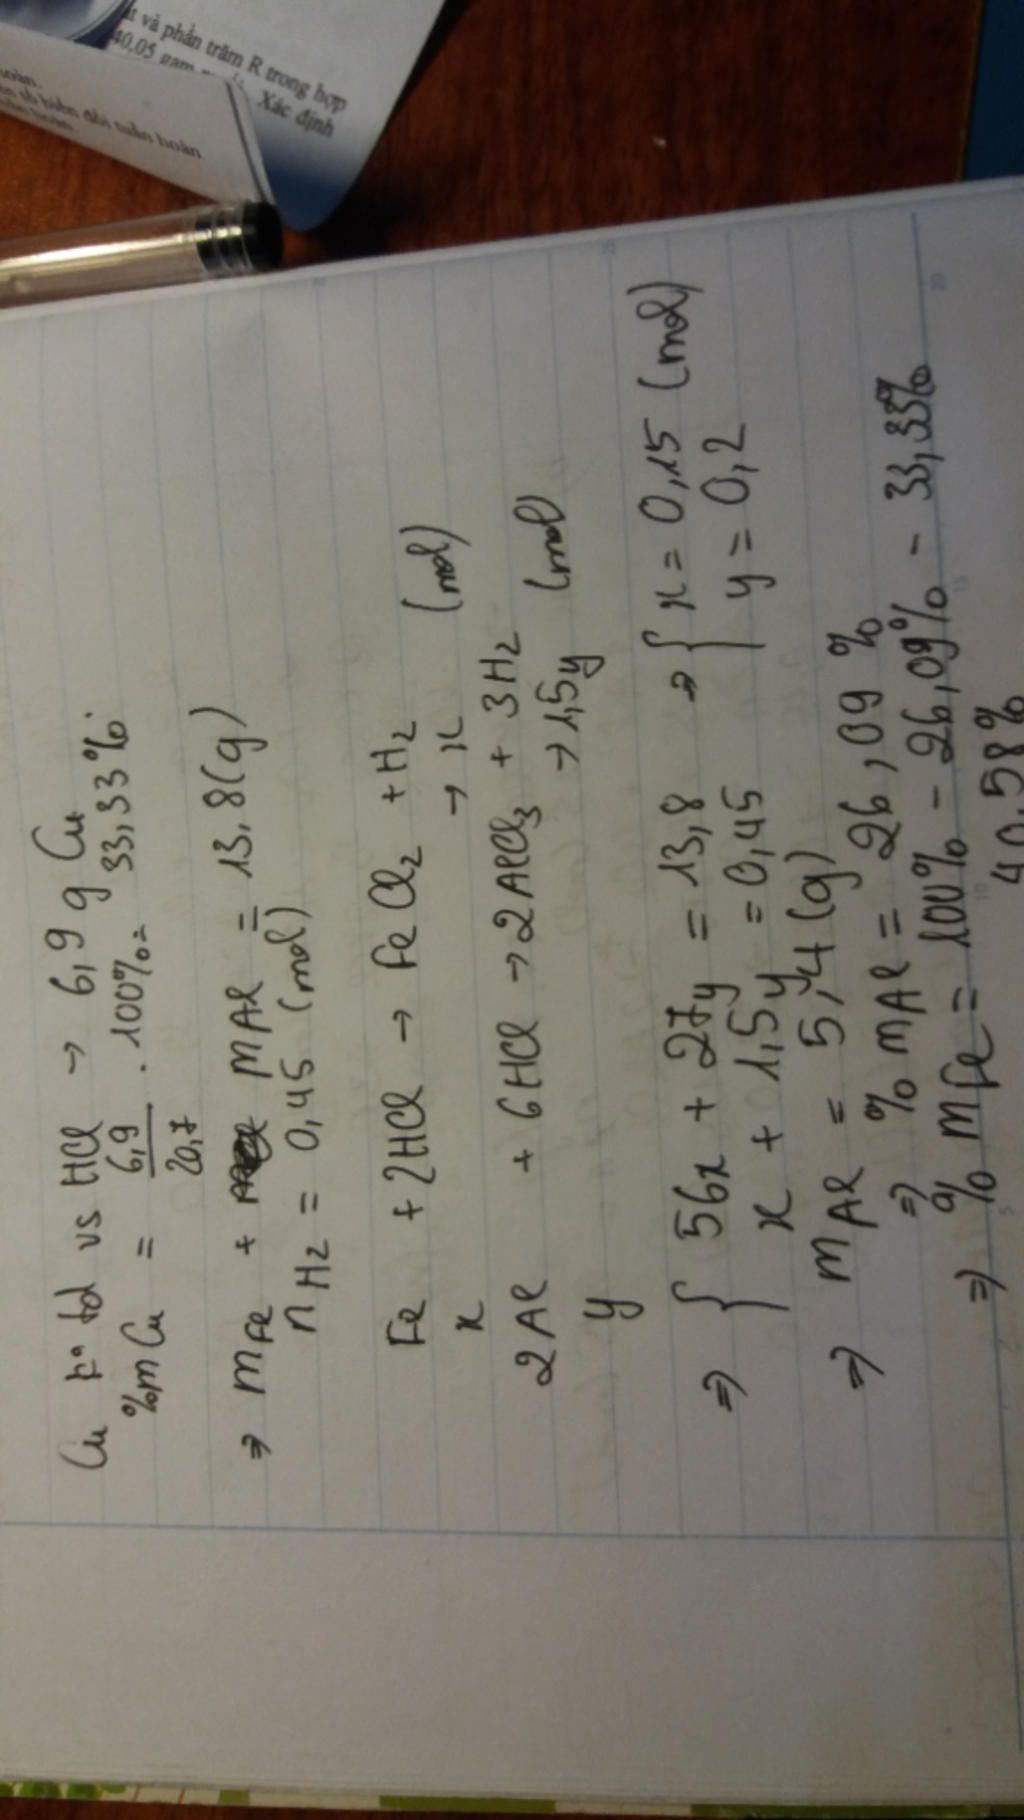 át và phần trăm R trong hợp
40,05 gam
Xác định
hoàn.
biến đổi tuần hoàn
Cu k° td vs HCl → 6,9 g Cu
%mCu = 6,9/20,7 . 100% = 33,33%.
⇒ mFe + mAl = 13,8(g)
nH2 = 0,45 (mol)
Fe + 2HCl → FeCl2 + H2
x → x (mol)
2Al + 6HCl → 2AlCl3 + 3H2
y → 1,5y (mol)
⇒ { 56x + 27y = 13,8 ⇒ { x = 0,15 (mol)
x + 1,5y = 0,45 y = 0,2
⇒ mAl = 5,4(g)
⇒ % mAl = 26,09 %
⇒ % mFe = 100% - 26,09% - 33,33%
40,58%